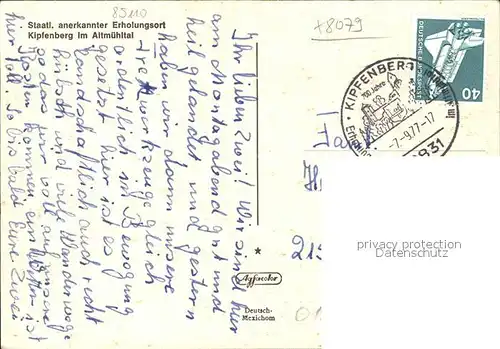 85110
+8079
Staatl. anerkannter Erholungsort
Kipfenberg im Altmühltal
Ihr lieben Zwei! Wir sind hier
am Montagabend gut und
heil gelandet und gestern
haben wir dann unsere
Tretwerkzeuge gleich
ordentlich in Bewegung
gesetzt hier ist es
landschaftlich auch recht
hübsch und viele Wanderwege
so dass wir voll auf unsere
Kosten kommen ein Wetter ist
hier toll. So bis bald Eure Zwei
DEUTSCHE BUNDESPOST
40
KIPFENBERG
700 Jahre
-7.-9.77-17
8831
Fam.
215
Agfacolor
Deutsch-
Mexichom
privacy protection
Datenschutz